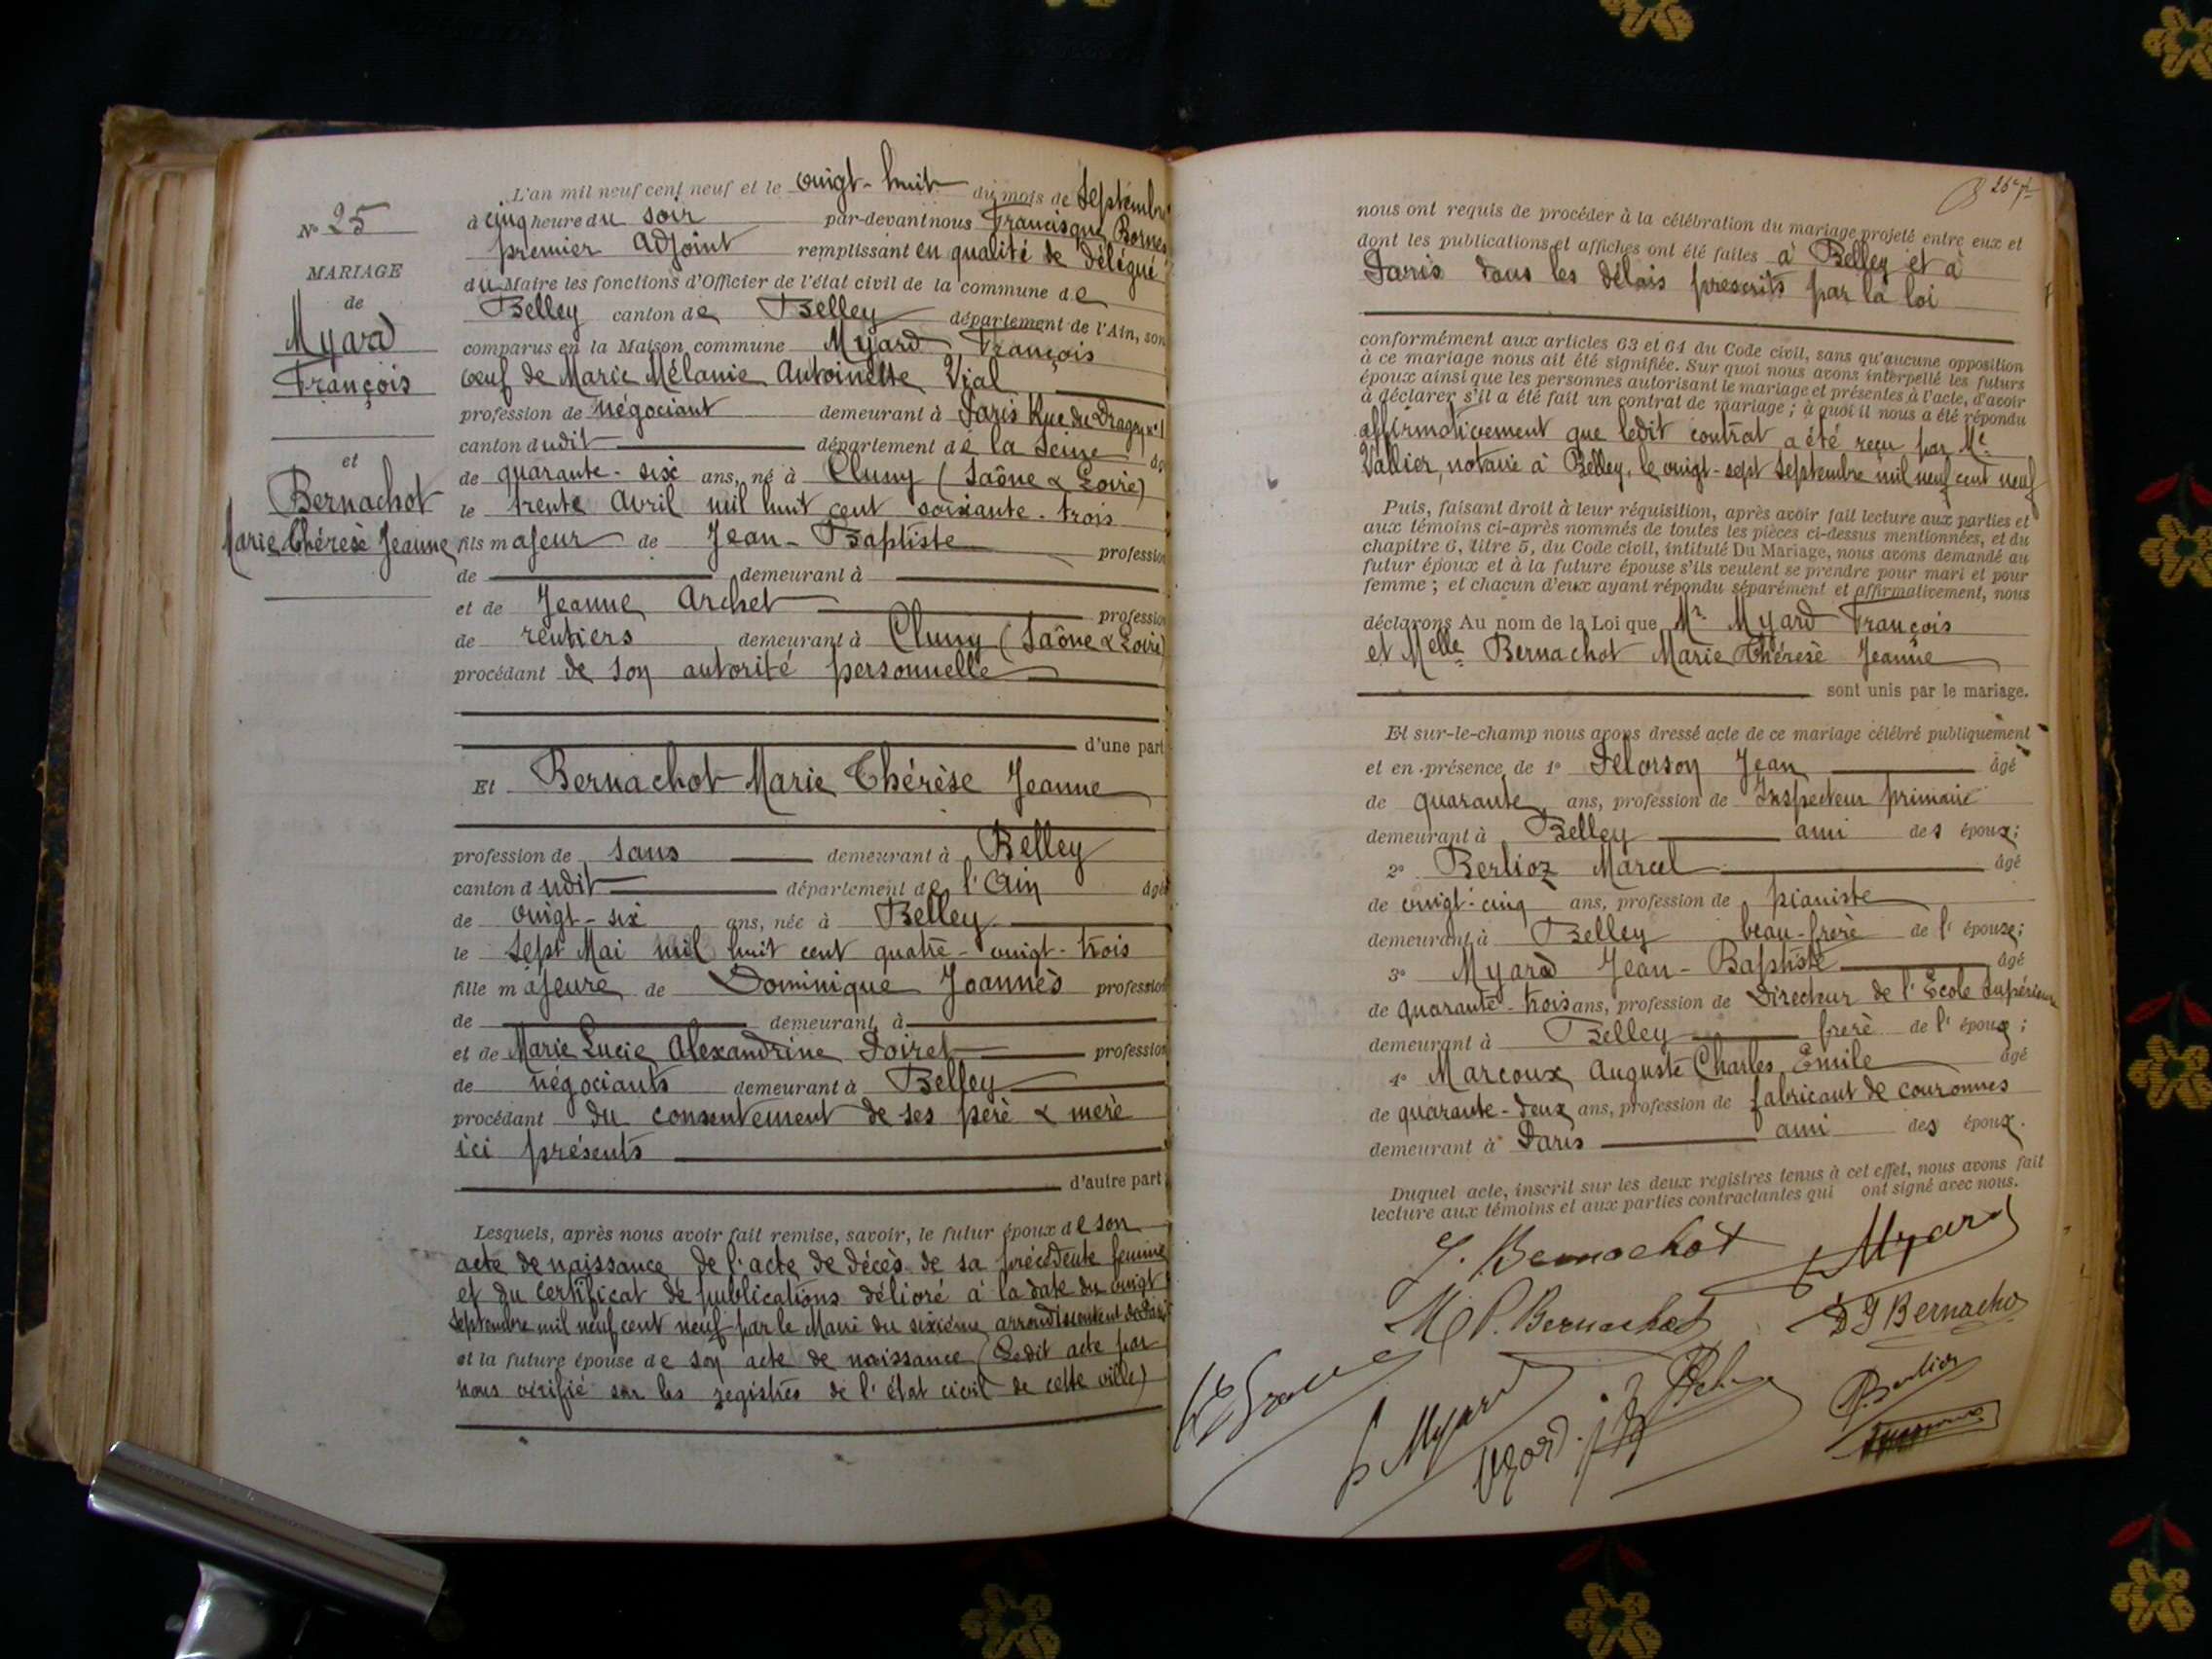 N° 25
MARIAGE
de
Myard
François
et
Bernachot
Marie Thérèse Jeanne
L'an mil neuf cent neuf et le vingt-huit du mois de Septembre
à cinq heure du soir par-devant nous Francisque Bornes
premier Adjoint remplissant en qualité de délégué
du Maire les fonctions d'Officier de l'état civil de la commune de
Belley canton de Belley département de l'Ain, son
comparus en la Maison commune Myard François
veuf de Marie Mélanie Antoinette Vial
profession de négociant demeurant à Paris Rue du Dragon n° 1
canton dudit département de la Seine âgé
de quarante-six ans, né à Cluny (Saône & Loire)
le trente Avril mil huit cent soixante-trois
fils majeur de Jean-Baptiste profession
de demeurant à
et de Jeanne Archet profession
de rentiers demeurant à Cluny (Saône & Loire)
procédant de son autorité personnelle
d'une part
Et Bernachot Marie Thérèse Jeanne
profession de sans demeurant à Belley
canton dudit département de l'Ain âgé
de vingt-six ans, née à Belley
le sept Mai mil huit cent quatre-vingt-trois
fille majeure de Dominique Joannès profession
de demeurant à
et de Marie Lucie Alexandrine Poiret profession
de négociants demeurant à Belley
procédant du consentement de ses père & mère
ici présents
d'autre part
Lesquels, après nous avoir fait remise, savoir, le futur époux de son
acte de naissance de l'acte de décès de sa précédente femme
et du certificat de publications délivré à la date du vingt
septembre mil neuf cent neuf par le Maire du sixième arrondissement de Paris
et la future épouse de son acte de naissance (Ledit acte par
nous vérifié sur les registres de l'état civil de cette ville)
nous ont requis de procéder à la célébration du mariage projeté entre eux et
dont les publications et affiches ont été faites à Belley et à
Paris dans les délais prescrits par la loi
conformément aux articles 63 et 64 du Code civil, sans qu'aucune opposition
à ce mariage nous ait été signifiée. Sur quoi nous avons interpellé les futurs
époux ainsi que les personnes autorisant le mariage et présentes à l'acte, d'avoir
à déclarer s'il a été fait un contrat de mariage ; à quoi il nous a été répondu
affirmativement que ledit contrat a été reçu par Me
Vallier, notaire à Belley, le vingt-sept septembre mil neuf cent neuf
Puis, faisant droit à leur réquisition, après avoir fait lecture aux parties et
aux témoins ci-après nommés de toutes les pièces ci-dessus mentionnées, et du
chapitre 6, titre 5, du Code civil, intitulé Du Mariage, nous avons demandé au
futur époux et à la future épouse s'ils veulent se prendre pour mari et pour
femme ; et chacun d'eux ayant répondu séparément et affirmativement, nous
déclarons Au nom de la Loi que Mr Myard François
et Melle Bernachot Marie Thérèse Jeanne
sont unis par le mariage.
Et sur-le-champ nous avons dressé acte de ce mariage célébré publiquement
et en présence de 1° Pelorson Jean âgé
de quarante ans, profession de Inspecteur primaire
demeurant à Belley ami des époux;
2° Berlioz Marcel âgé
de vingt-cinq ans, profession de pianiste
demeurant à Belley beau-frère de l'épouse;
3° Myard Jean-Baptiste âgé
de quarante-trois ans, profession de Directeur de l'Ecole Supérieure
demeurant à Belley frère de l'époux ;
4° Marcoux Auguste Charles Emile âgé
de quarante-deux ans, profession de fabricant de couronnes
demeurant à Paris ami des époux.
Duquel acte, inscrit sur les deux registres tenus à cet effet, nous avons fait
lecture aux témoins et aux parties contractantes qui ont signé avec nous.
J. Bernachot Myard
M P. Bernachot D J Bernachot
Myard
Berlioz